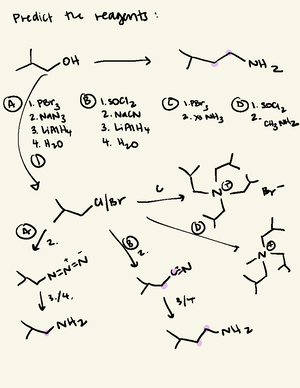 Predict the reagents:
OH
NH2
A
1. PBr3
2. NaN3
3. LiAlH4
4. H2O
B
1. SOCl2
2. NaCN
3. LiAlH4
4. H2O
C
1. PBr3
2. xs NH3
D
1. SOCl2
2. CH3NH2
1
Cl/Br
C
N
+
Br−
A
2.
B
2.
D
N=N=N
+
−
C≡N
N
+
3./4.
3/4
NH2
NH2